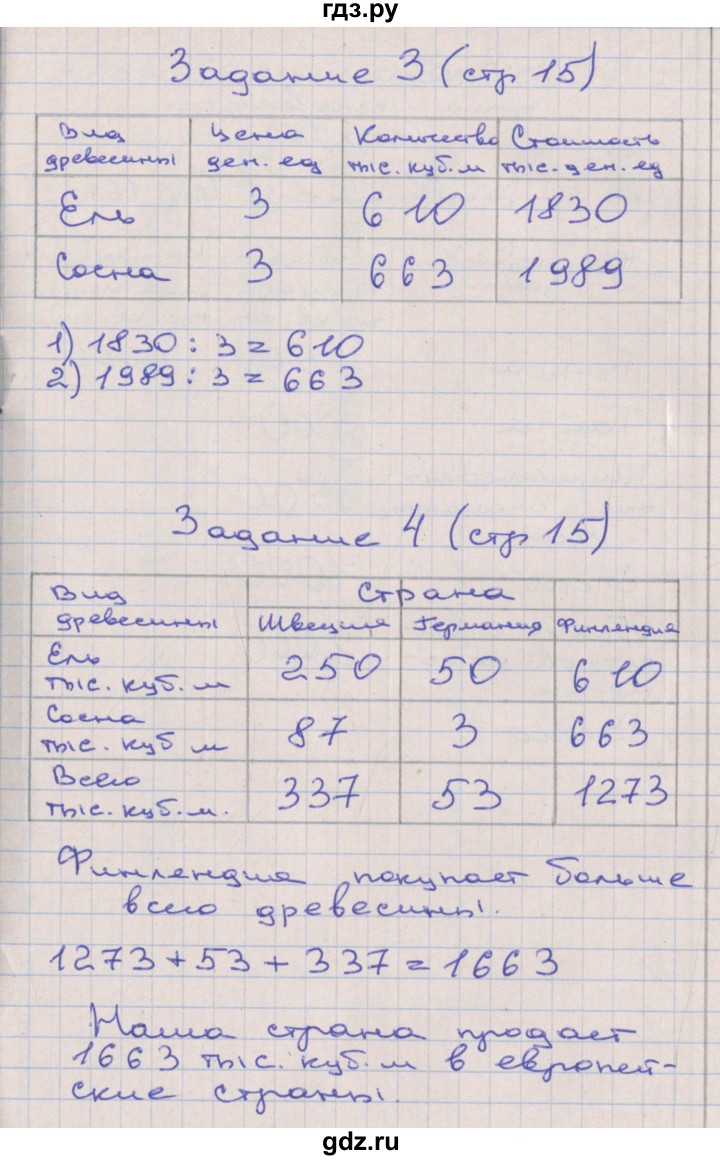 гдз.ру
Задание 3 (стр 15)
Вид древесины Цена ден. ед Количество тыс. куб. м Стоимость тыс. ден. ед
Ель 3 610 1830
Сосна 3 663 1989
1) 1830 : 3 = 610
2) 1989 : 3 = 663
Задание 4 (стр 15)
Вид древесины Страна
Швеция Германия Финлендия
Ель тыс. куб. м 250 50 610
Сосна тыс. куб м 87 3 663
Всего тыс. куб. м. 337 53 1273
Финлендия покупает больше
всего древесины.
1273 + 53 + 337 = 1663
Наша страна продает
1663 тыс. куб. м в европей-
ские страны.
gdz.ru